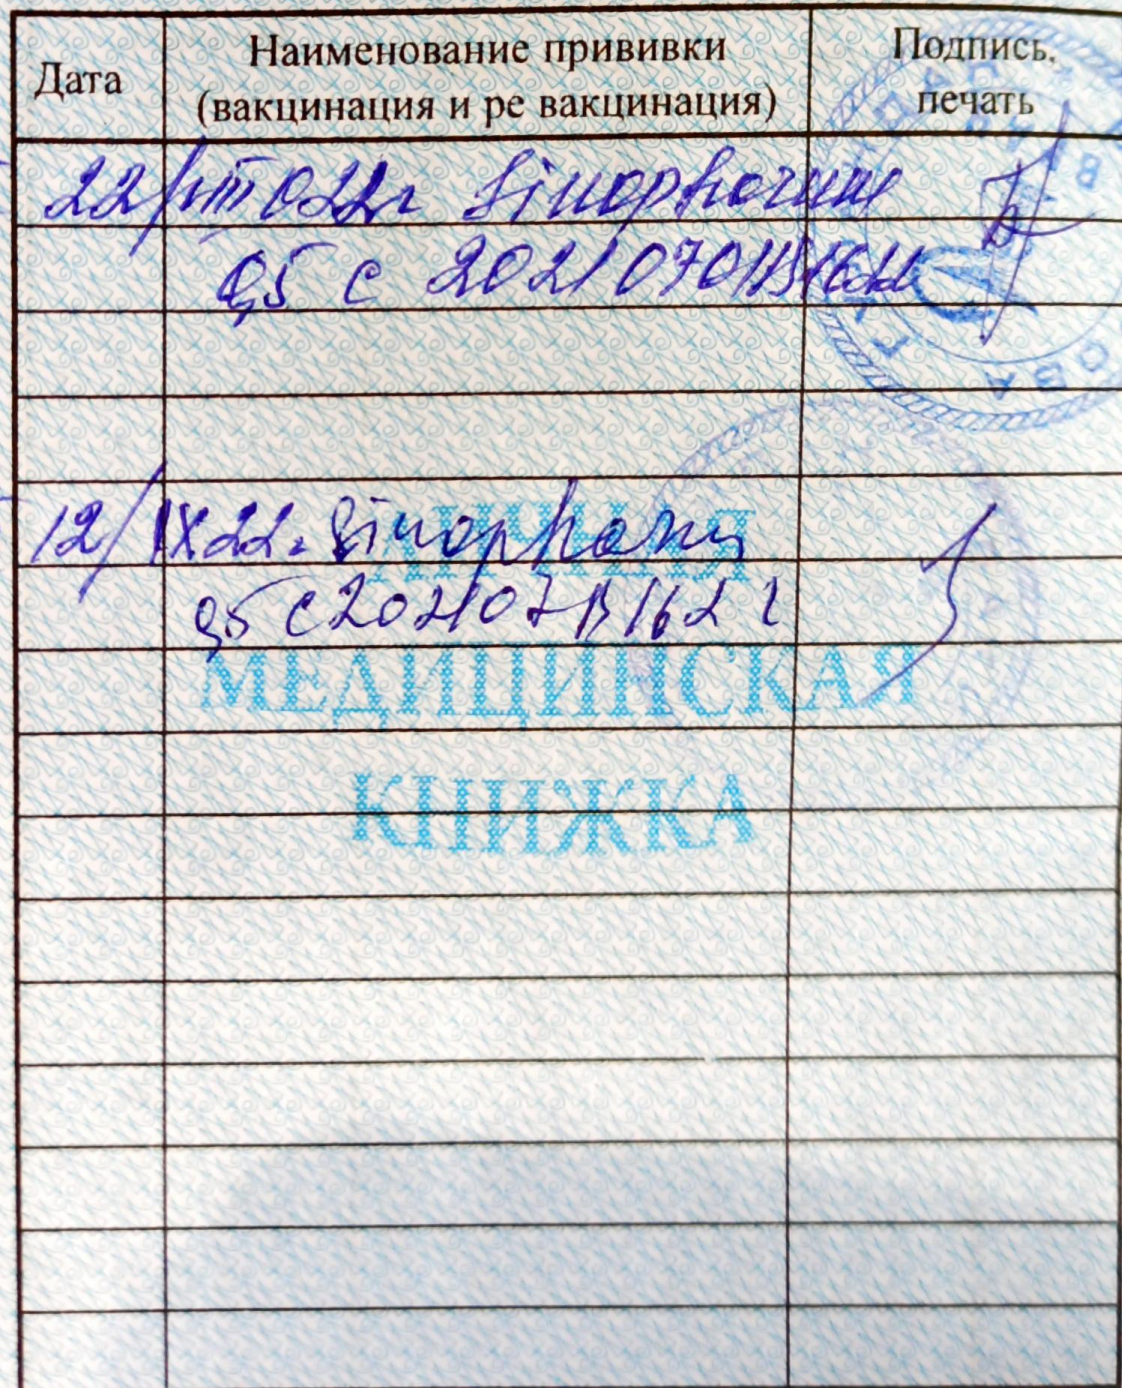 Дата
Наименование прививки
(вакцинация и ре вакцинация)
Подпись,
печать
22/VIII 022г Sinopharm
0,5 с 202107
12/IX 22г Sinopharm
0,5 с 202107B1621
ЛИЧНАЯ
МЕДИЦИНСКАЯ
КНИЖКА